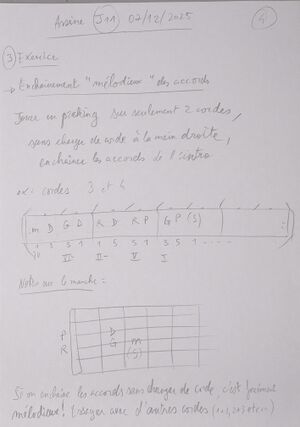 Assine J11 07/12/2025 4
3 Exercice
→ Enchaînement "mélodieux" des accords
Jouer en picking sur seulement 2 cordes,
sans changer de corde à la main droite,
enchaîner les accords de l'intro
ex: cordes 3 et 4
m D G D R D R P G P (S)
1 3 5 1 1 5 5 1 3 5 1 ....
II- V I
Notes sur le manche =
P D
R G m
(S)
Si on enchaîne les accords sans changer de corde, c'est forcément
mélodieux! Essayer avec d'autres cordes (1+2, 2+3 etc...)